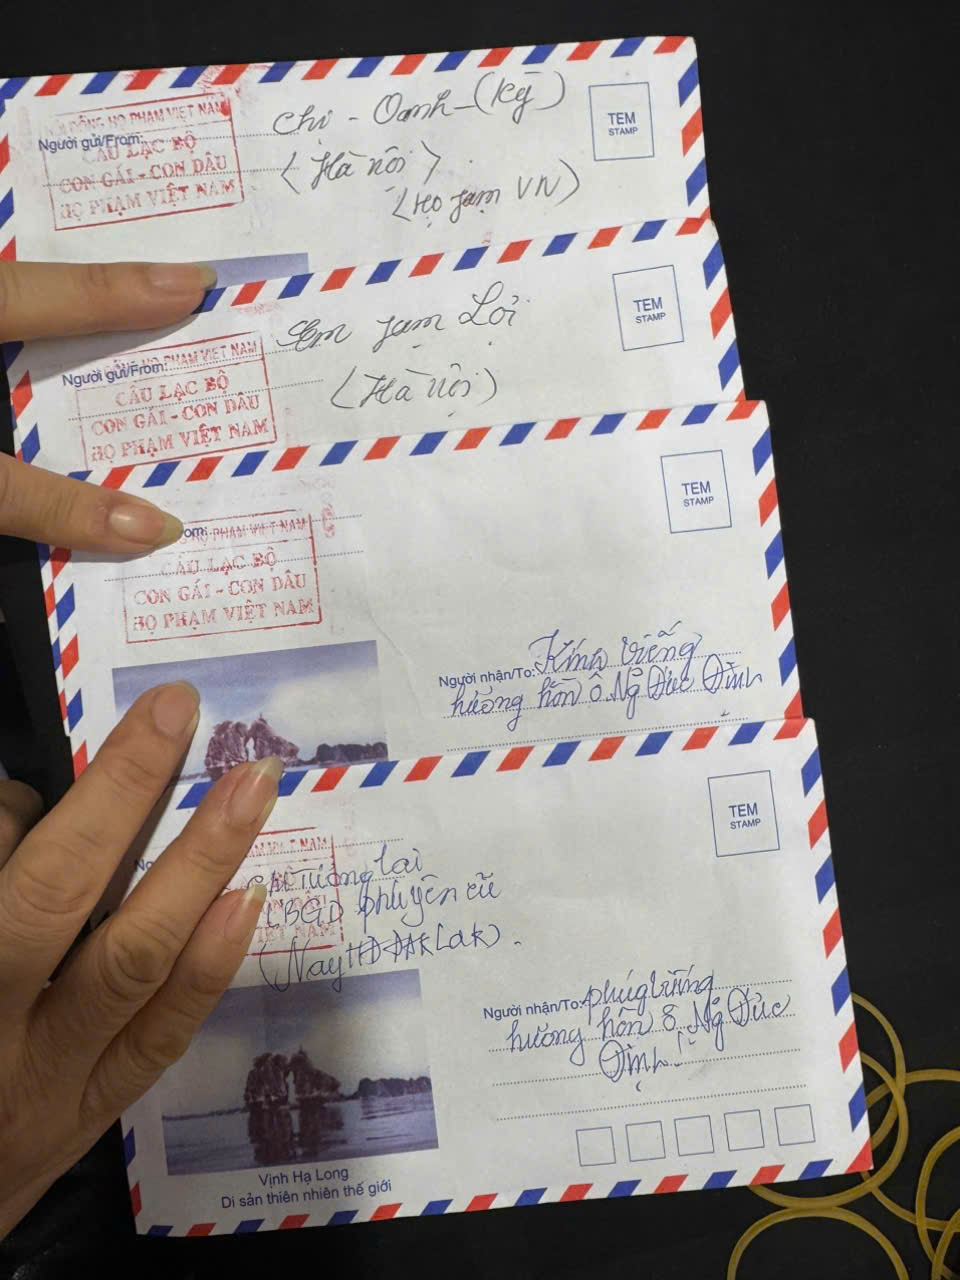 HỘI ĐỒNG HỌ PHẠM VIỆT NAM
Người gửi/From:
CÂU LẠC BỘ
CON GÁI - CON DÂU
HỌ PHẠM VIỆT NAM
Chị - Oanh - (Kỳ)
(Hà Nội)
(Họ Phạm VN)
TEM
STAMP
ĐỒNG HỌ PHẠM VIỆT NAM
Người gửi/From:
CÂU LẠC BỘ
CON GÁI - CON DÂU
HỌ PHẠM VIỆT NAM
Em Phạm Lợi
(Hà Nội)
TEM
STAMP
rom:
HỌ PHẠM VIỆT NAM
CÂU LẠC BỘ
CON GÁI - CON DÂU
HỌ PHẠM VIỆT NAM
TEM
STAMP
Người nhận/To: Kính viếng
hương hồn ô. Ng Đức Định
TEM
STAMP
M VIỆT NAM
VIỆT NAM
lại
phú yên cũ
(Nay Lak).
Người nhận/To: phúng viếng
hương hồn ô Ng Đức
Định
Vịnh Hạ Long
Di sản thiên nhiên thế giới